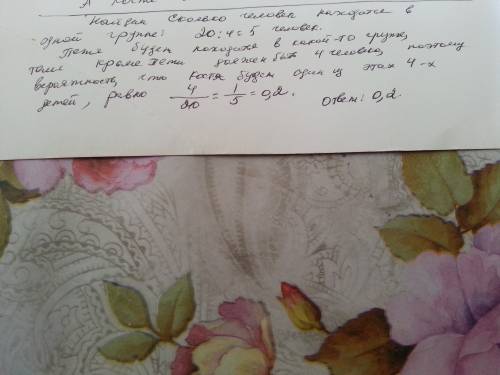 Найдем сколько человек находится в
одной группе: 20:4=5 человек.
Петя будет находится в какой-то группе,
там кроме Пети должен быть 4 человека, поэтому
вероятность, что Костя будет один из этих 4-х
детей, равно 4/20 = 1/5 = 0,2. Ответ: 0,2.